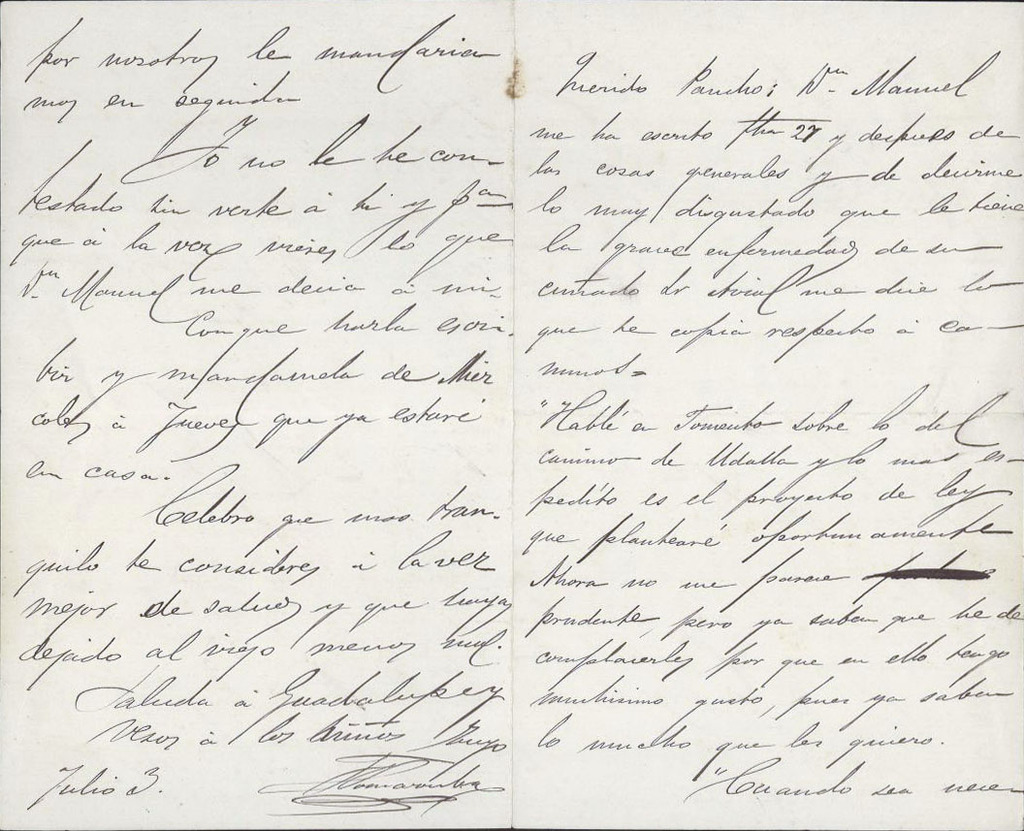 Querido Pancho; Dn. Manuel
me ha escrito fha 27 y despues de
las cosas generales y de decirme
lo muy disgustado que le tiene
la grave enfermedad de su
cuñado Sr me dice lo
que te copia respecto á ca-
minos=
"Hablé en Fomento sobre lo del
camino de Udalla y lo mas es-
pedito es el proyecto de ley
que plantearé oportunamente
Ahora no me parece
prudente, pero ya saben que he de
complacerles por que en ello tengo
muchisimo gusto, pues ya saben
lo mucho que les quiero.
"Cuando sea nece
por nosotros le mandaria
mos en seguida
Yo no le he con-
testado sin verte á ti y pa
que á la vez vieses lo que
Dn. Manuel me decia á mi-
Conque hazla escri-
bir y mandamela de Mier
coles á Jueves que ya estaré
en casa.
Celebro que mas tran-
quilo te consideres á la vez
mejor de salud y que hayas
dejado al viejo menos mal.
Saluda á Guadalupe y
vesos á los niños tuyo
Julio 3.